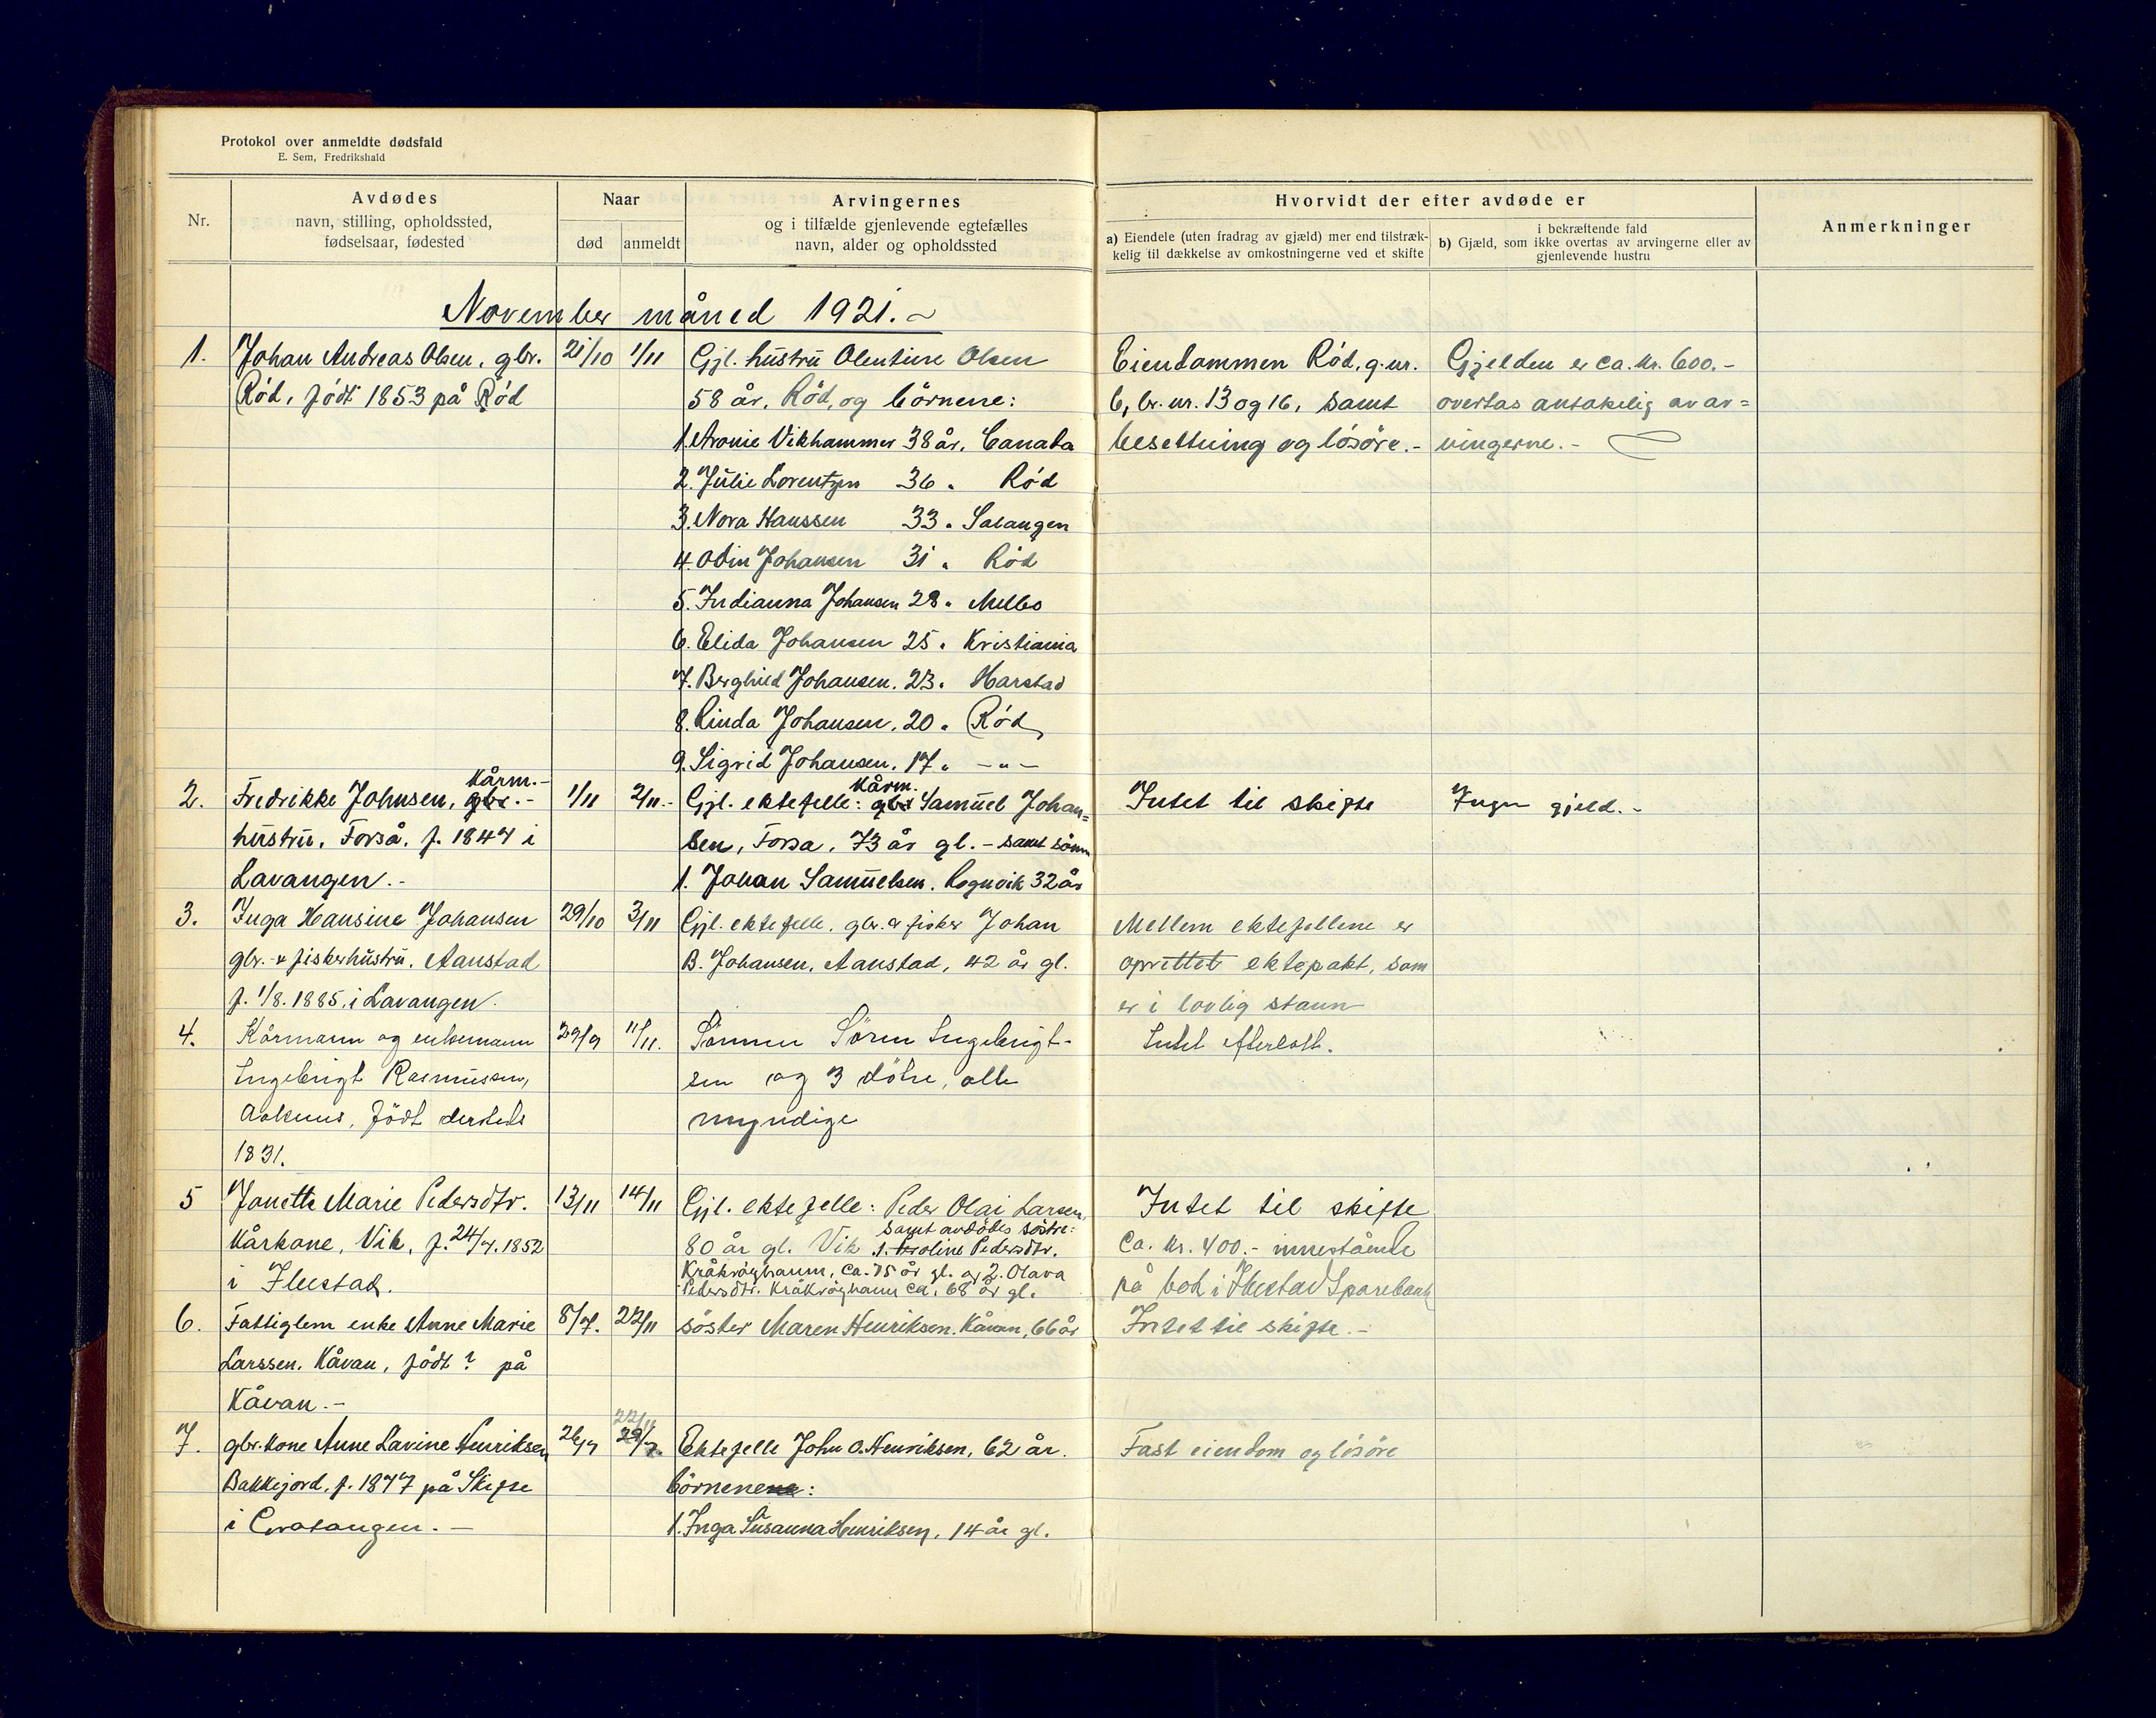 Protokol over anmeldte dødsfald
E. Sem, Fredrikshald
Nr.
Avdødes
navn, stilling, opholdssted,
fødselsaar, fødested
Naar
død anmeldt
Arvingernes
og i tilfælde gjenlevende egtefælles
navn, alder og opholdssted
Hvorvidt der efter avdøde er
a) Eiendele (uten fradrag av gjæld) mer end tilstræk-
kelig til dækkelse av omkostningerne ved et skifte
i bekræftende fald
b) Gjæld, som ikke overtas av arvingerne eller av
gjenlevende hustru
Anmerkninger
November måned 1921.
1. Johan Andreas Olsen, gbr. 21/10 1/11 Gjl. hustru Olentine Olsen Eiendommen Röd, g.nr. Gjelden er ca. kr. 600.-
Röd, födt 1853 på Röd 58 år, Röd, og börnene: 6, br. nr. 13 og 16, samt overtas antakelig av ar=
1. Aronie Vikhammer 38 år, Canada besettning og lösöre.- vingerne.-
2. Julie Lorentzen 36 " Röd
3. Nora Hanssen 33 " Salangen
4. Odin Johansen 31 " Röd
5. Indianna Johansen 28 " Melbo
6. Elida Johansen 25 " Kristiania
7. Berghild Johansen. 23 " Harstad
8. Rinda Johansen, 20 " Röd
9. Sigrid Johansen, 17 " -"-
2. Fredrikke Johnsen, gbr.- Kårm.- 1/11 2/11.- Gjl. ektefelle: gbr Kårm. Samuel Johan= Intet til skifte Ingen gjeld.-
hustru, Forså, f. 1847 i sen, Forså, 73 år gl. - samt sönn
Lavangen.- 1. Johan Samuelsen, Rognvik 32 år
3. Inga Hansine Johansen 29/10 3/11 Gjl. ektefelle, gbr. & fisker Johan Mellem ektefellene er
gbr.- & fiskerhustru, Aanstad B. Johansen, Aanstad, 42 år gl. oprettet ektepakt, som
f. 1/8. 1885, i Lavangen. er i lovlig stann
4. Kårmann og enkemann 29/9 11/11. Sönnen Sören Ingebrigt- Intet efterlatt.
Ingebrigt Rasmussen, sen og 3 dötre, alle
födt dersteds myndige
1831.
5 Janette Marie Pedersdtr. 13/11 14/11 Gjl. ektefelle: Peder Olai Larsen, Intet til skifte
Kårkone, Vik, f. 24/4. 1852 80 år gl. Vik samt avdödes söstre: 1. Karoline Pedersdtr. Ca. kr. 400.- innestående
i Ibestad. Kråkröghamn, ca. 75 år gl. og 2. Olava på bok i Ibestad Sparebank
Pedersdtr. Kråkröghamn ca. 68 år gl.
6. Fattiglem enke Anne Marie 8/7. 22/11 söster Maren Henriksen, Kåvan, 66 år Intet til skifte.-
Larssen, Kåvan, födt ? på
Kåvan.-
22/11
7. gbr. kone Anne Lavine Henriksen 26/7 29/7. Ektefelle John O. Henriksen, 62 år. Fast eiendom og lösöre
Bakkejord, f. 1877 på Skifse börnenene:
i Gratangen.- 1. Inga Susanna Henriksen, 14 år gl.